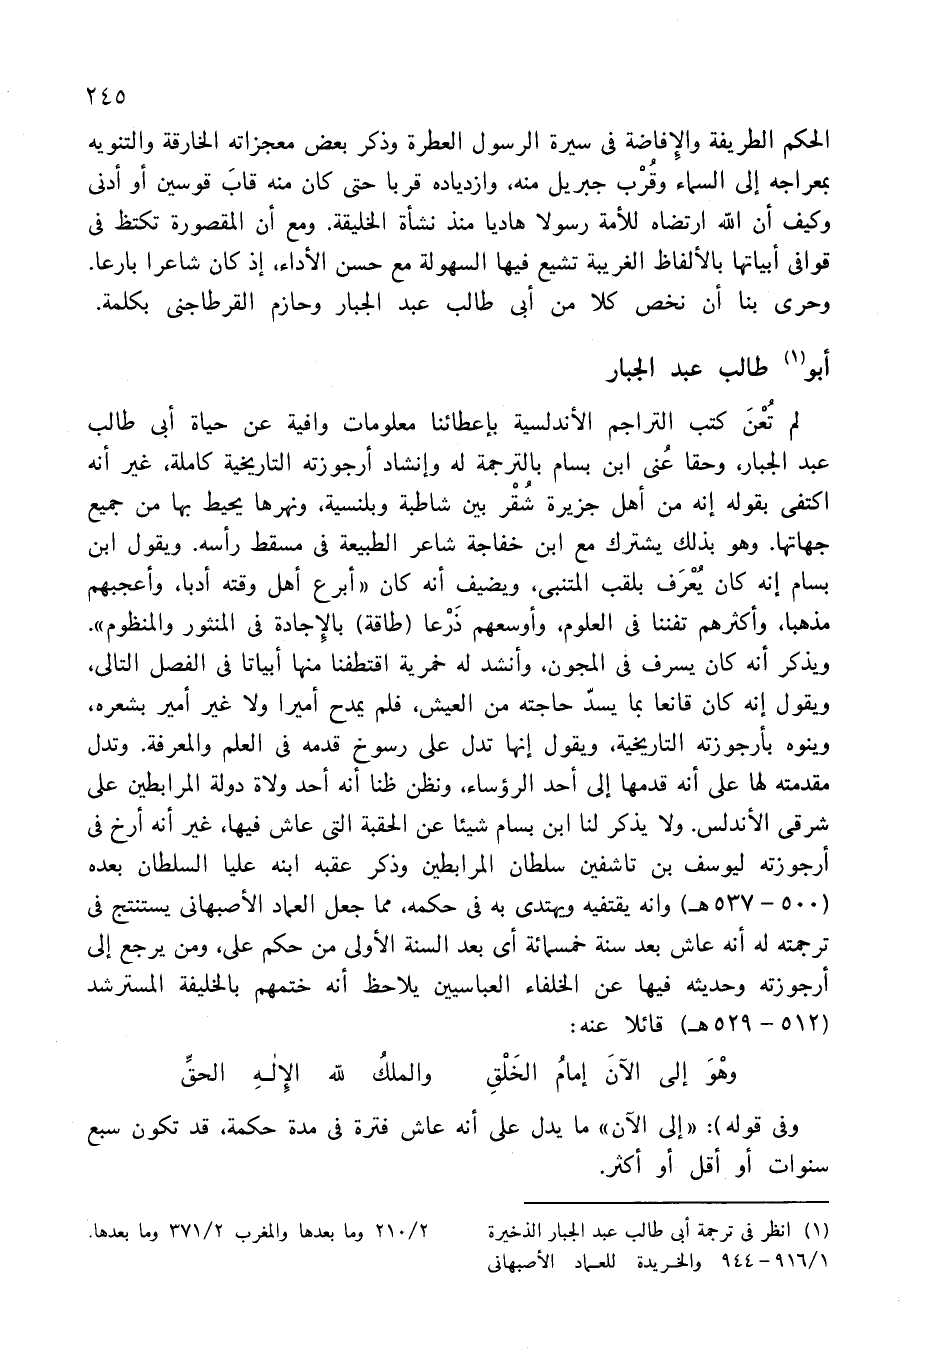 ٢٤٥
الحكم الطريفة والإفاضة فى سيرة الرسول العطرة وذكر بعض معجزاته الخارقة والتنويه
بمعراجه إلى السماء وقُرْب جبريل منه، وازدياده قربا حتى كان منه قابَ قوسين أو أدنى
وكيف أن الله ارتضاه للأمة رسولا هاديا منذ نشأة الخليقة. ومع أن المقصورة تكتظ فى
قوافى أبياتها بالألفاظ الغريبة تشيع فيها السهولة مع حسن الأداء، إذ كان شاعرا بارعا.
وحرى بنا أن نخص كلا من أبى طالب عبد الجبار وحازم القرطاجنى بكلمة.
أبو(١) طالب عبد الجبار
لم تُعْنَ كتب التراجم الأندلسية بإعطائنا معلومات وافية عن حياة أبى طالب
عبد الجبار، وحقا عُنى ابن بسام بالترجمة له وإنشاد أرجوزته التاريخية كاملة، غير أنه
اكتفى بقوله إنه من أهل جزيرة شُقْر بين شاطبة وبلنسية، ونهرها يحيط بها من جميع
جهاتها. وهو بذلك يشترك مع ابن خفاجة شاعر الطبيعة فى مسقط رأسه. ويقول ابن
بسام إنه كان يُعْرَف بلقب المتنبى، ويضيف أنه كان «أبرع أهل وقته أدبا، وأعجبهم
مذهبا، وأكثرهم تفننا فى العلوم، وأوسعهم ذَرْعا (طاقة) بالإجادة فى المنثور والمنظوم».
ويذكر أنه كان يسرف فى المجون، وأنشد له خمرية اقتطفنا منها أبياتا فى الفصل التالى،
ويقول إنه كان قانعا بما يسدّ حاجته من العيش، فلم يمدح أميرا ولا غير أمير بشعره،
وينوه بأرجوزته التاريخية، ويقول إنها تدل على رسوخ قدمه فى العلم والمعرفة. وتدل
مقدمته لها على أنه قدمها إلى أحد الرؤساء، ونظن ظنا أنه أحد ولاة دولة المرابطين على
شرقى الأندلس. ولا يذكر لنا ابن بسام شيئا عن الحقبة التى عاش فيها، غير أنه أرخ فى
أرجوزته ليوسف بن تاشفين سلطان المرابطين وذكر عقبه ابنه عليا السلطان بعده
(٥٠٠ – ٥٣٧هـ) وانه يقتفيه ويهتدى به فى حكمه، مما جعل العماد الأصبهانى يستنتج فى
ترجمته له أنه عاش بعد سنة خمسمائة أى بعد السنة الأولى من حكم على، ومن يرجع إلى
أرجوزته وحديثه فيها عن الخلفاء العباسيين يلاحظ أنه ختمهم بالخليفة المسترشد
(٥١٢ – ٥٢٩هـ) قائلا عنه:
وهْوَ إلى الآنَ إمامُ الخَلْقِ والملكُ لله الإلٰهِ الحقِّ
وفى قوله): «إلى الآن» ما يدل على أنه عاش فترة فى مدة حكمة، قد تكون سبع
سنوات أو أقل أو أكثر.
(١) انظر فى ترجمة أبى طالب عبد الجبار الذخيرة
٩١٦/١ – ٩٤٤ والخريدة للعماد الأصبهانى
٢١٠/٢ وما بعدها والمغرب ٣٧١/٢ وما بعدها.